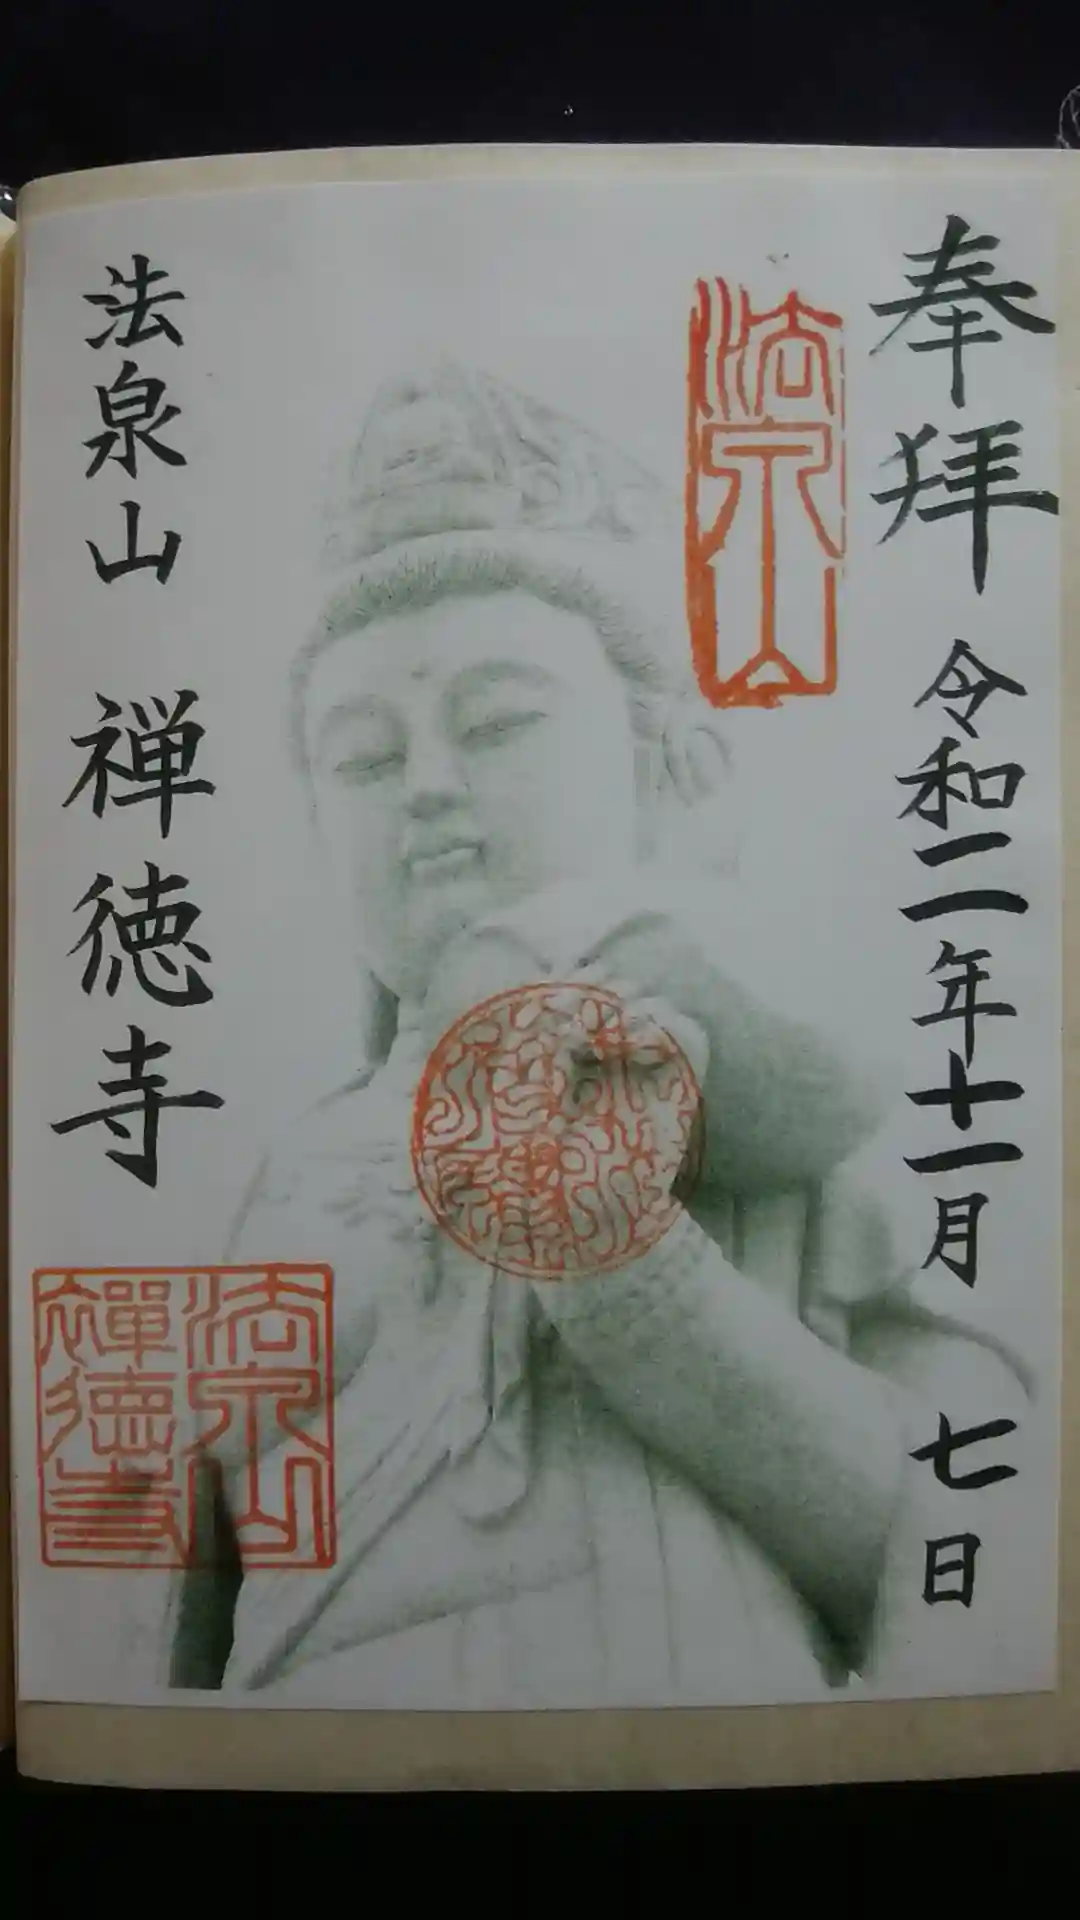 奉拝 令和二年十一月 七日
法泉山
法泉山 禅徳寺
法泉山
禪徳寺